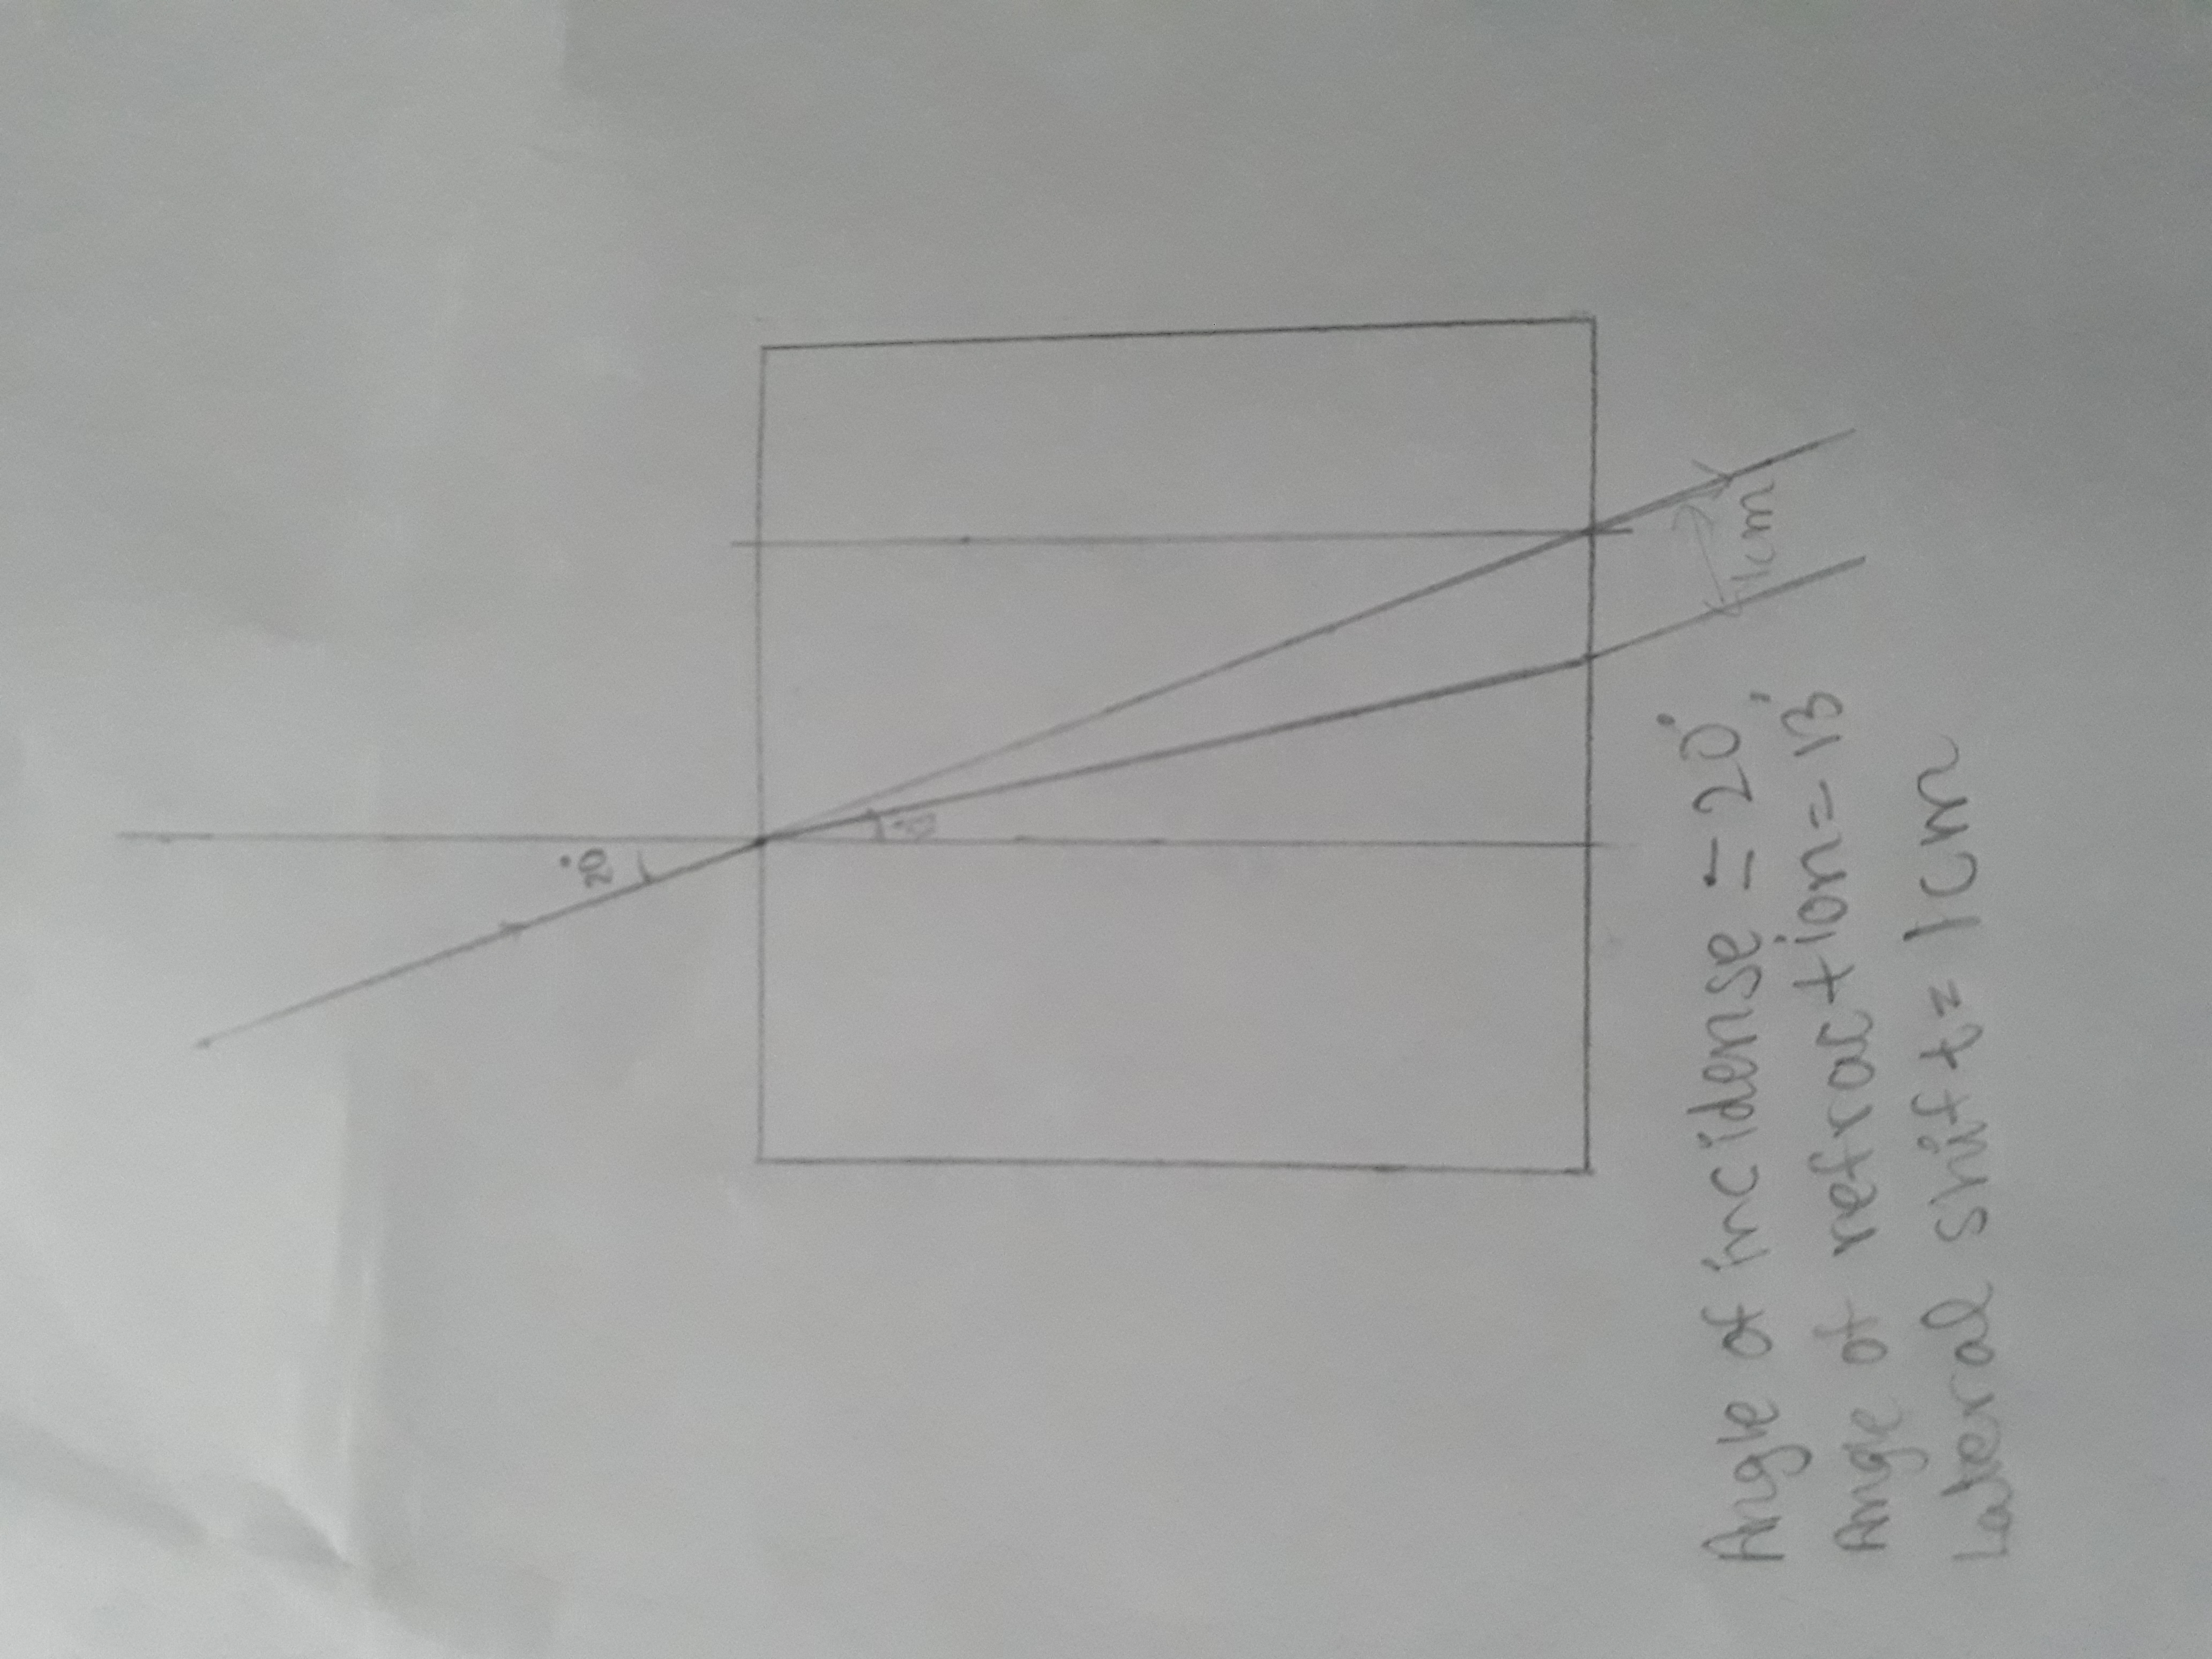 20°
1cm
Angle of incidense = 20°
Angle of refraction = 13°
Lateral shift = 1cm